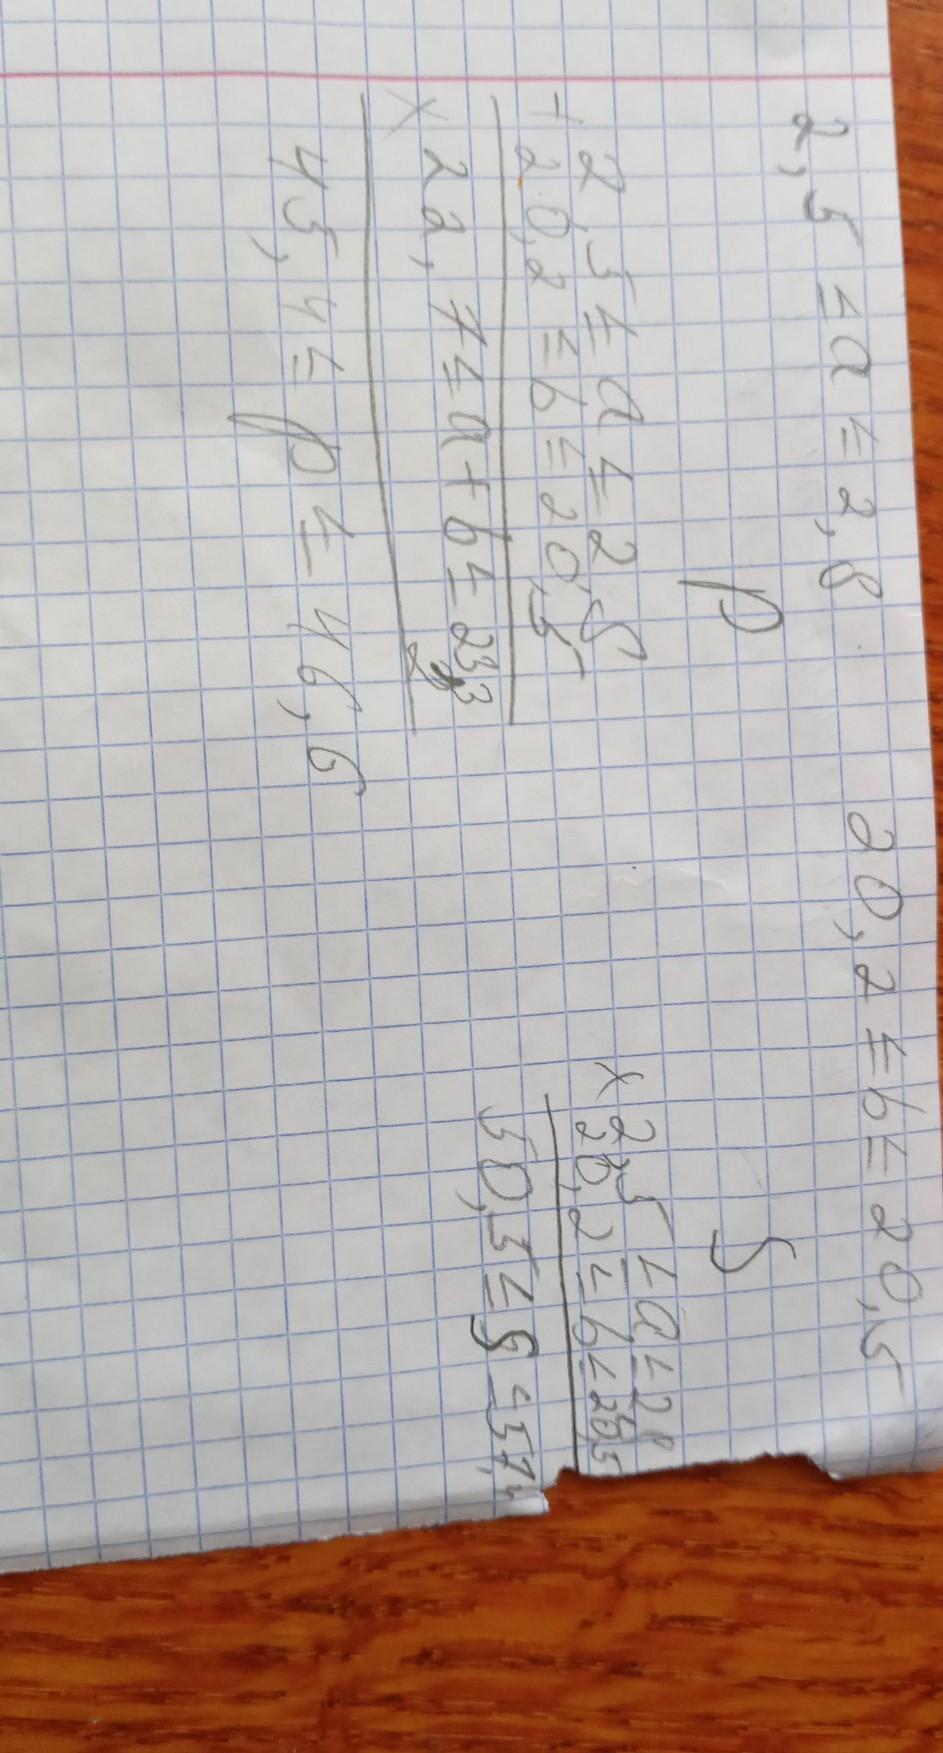 2,5 ≤ a ≤ 2,8 20,2 ≤ b ≤ 20,5
P S
2,5 ≤ a ≤ 2,8
+ 20,2 ≤ b ≤ 20,5
22,7 ≤ a + b ≤ 23,3
× 2
45,4 ≤ P ≤ 46,6
2,5 ≤ a ≤ 2,8
× 20,2 ≤ b ≤ 20,5
50,5 ≤ S ≤ 57,4